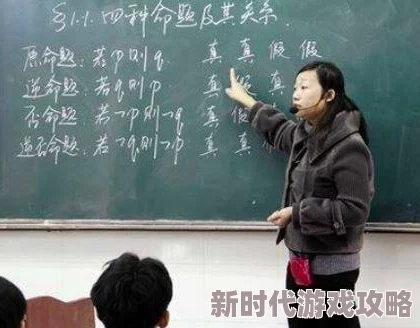 §1.1. 四种命题及其关系.
原命题：若p则q. 真 真 假 假
逆命题：若q则p 真 假 真
否命题：若¬p则¬q 真 假
逆否命题：若¬q则¬p 真 真 假
新时代游戏攻略